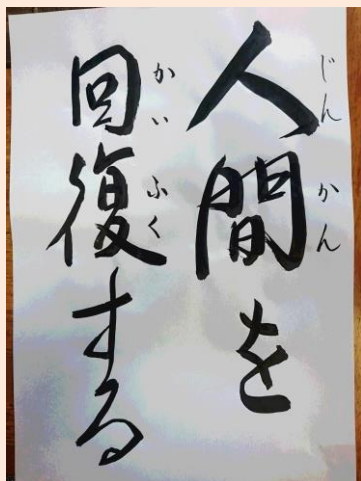 人間を
じんかん
回復する
かいふく